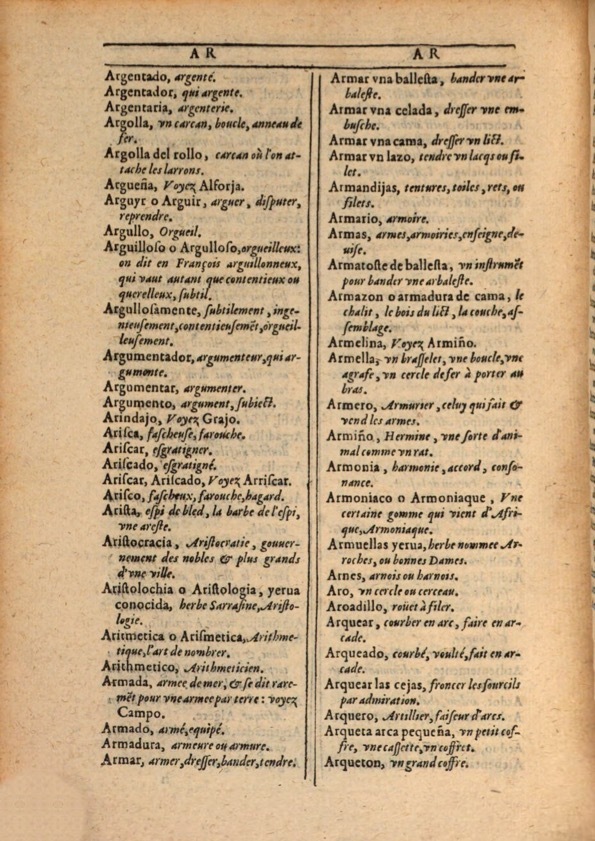 AR
Argentado, argenté.
Argentador, qui argente.
Argentaria, argenterie.
Argolla, vn carcan, boucle, anneau de
fer.
Argolla del rollo, carcan où l'on at-
tache les larrons.
Argueña, Voyez Alforja.
Arguyr o Arguir, arguer, disputer,
reprendre.
Argullo, Orgueil.
Arguilloso o Argulloso, orgueilleux:
on dit en François arguillonneux,
qui vaut autant que contentieux ou
querelleux, subtil.
Argullosamente, subtilement, inge-
nieusement, contentieusemēt, orgueil-
leusement.
Argumentador, argumenteur, qui ar-
gumente.
Argumentar, argumenter.
Argumento, argument, subiect.
Arindajo, Voyez Grajo.
Arisca, fascheuse, farouche.
Ariscar, esgratigner.
Ariscado, esgratigné.
Ariscar, Ariscado, Voyez Arriscar.
Arisco, fascheux, farouche, hagard.
Arista, espi de bled, la barbe de l'espi,
vne areste.
Aristocracia, Aristocratie, gouuer-
nement des nobles & plus grands
d'vne ville.
Aristolochia o Aristologia, yerua
conocida, herbe Sarrasine, Aristo-
logie.
Aritmetica o Arismetica, Arithme-
tique, l'art de nombrer.
Arithmetico, Arithmeticien.
Armada, armee de mer, & se dit rare-
mēt pour vne armee par terre: voyez
Campo.
Armado, armé, equipé.
Armadura, armeure ou armure.
Armar, armer, dresser, bander, tendre.
AR
Armar vna ballesta, bander vne ar-
baleste.
Armar vna celada, dresser vne em-
busche.
Armar vna cama, dresser vn lict.
Armar vn lazo, tendre vn lacqs ou fi-
let.
Armandijas, tentures, toiles, rets, ou
filets.
Armario, armoire.
Armas, armes, armoiries, enseigne, de-
uise.
Armatoste de ballesta, vn instrumēt
pour bander vne arbaleste.
Armazon o armadura de cama, le
chalit, le bois du lict, la couche, as-
semblage.
Armelina, Voyez Armiño.
Armella, vn brasselet, vne boucle, vne
agrafe, vn cercle de fer à porter au
bras.
Armero, Armurier, celuy qui fait &
vend les armes.
Armiño, Hermine, vne sorte d'ani-
mal comme vn rat.
Armonia, harmonie, accord, conso-
nance.
Armoniaco o Armoniaque, Vne
certaine gomme qui vient d'Afri-
que, Armoniaque.
Armuellas yerua, herbe nommee Ar-
roches, ou bonnes Dames.
Arnes, arnois ou harnois.
Aro, vn cercle ou cerceau.
Aroadillo, rouet à filer.
Arquear, courber en arc, faire en ar-
cade.
Arqueado, courbé, voulté, fait en ar-
cade.
Arquear las cejas, froncer les sourcils
par admiration.
Arquero, Artillier, faiseur d'arcs.
Arqueta arca pequeña, vn petit cof-
fre, vne cassette, vn coffret.
Arqueton, vn grand coffre.